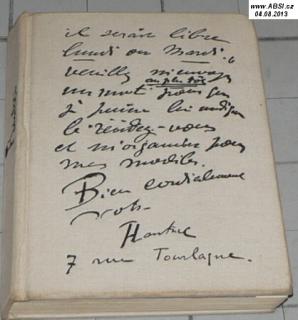 www.ABSI.cz
04.08.2013
il serait libre
lundi ou mardi.
veuillez m'envoyer
au plus tôt
un mot pour que
je puisse lui indiquer
le rendez-vous
et m'organiser pour
mes modèles.
Bien cordialement
votre
7 rue Tourlaque.